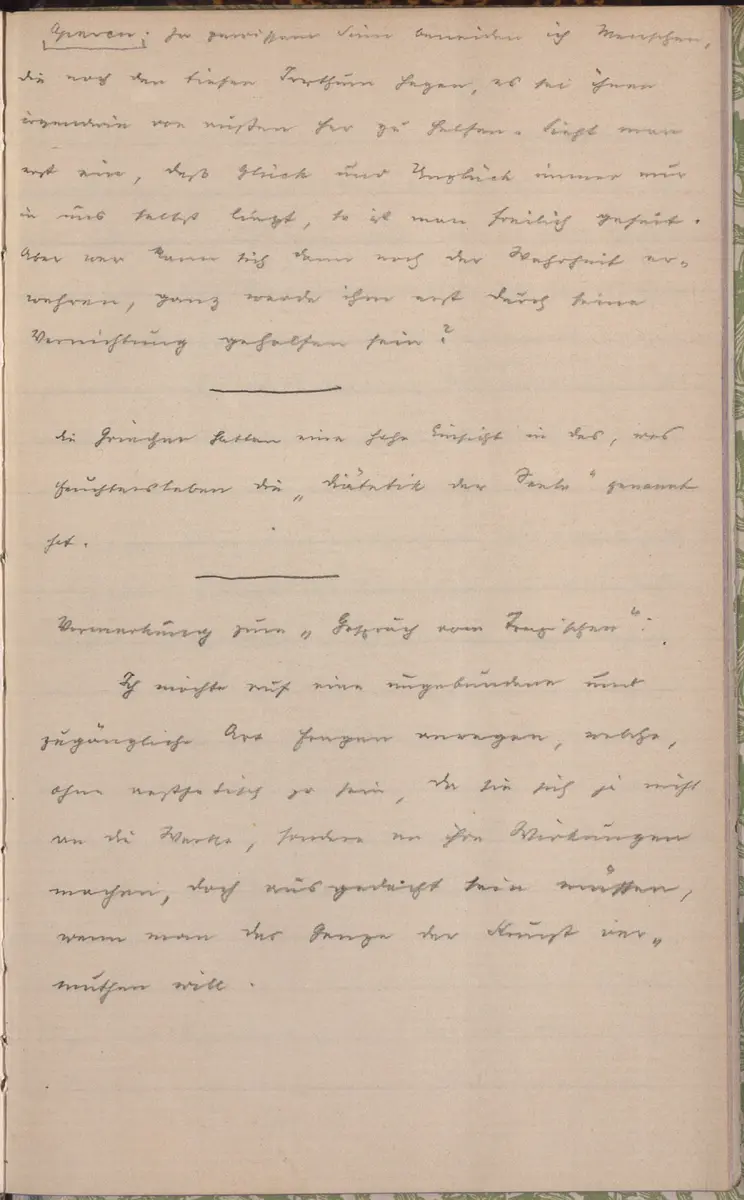 Aperçu: In gewissem Sinn beneiden ich Menschen,
die noch den tiefen Irrthum hegen, es sei ihnen
irgendwie von außen her zu helfen. Sieht man
erst ein, daß Glück und Unglück immer nur
in uns selbst liegt, so ist man freilich gefeit.
Aber wer kann sich dann noch der Wahrheit er-
wehren, ganz werde ihm erst durch seine
Vernichtung geholfen sein?
die Griechen hatten eine hohe Einsicht in das, was
Feuchtersleben die „Diätetik der Seele“ genannt
hat.
Vormerkung zum „Gespräch vom Tragischen“:
Ich möchte auf eine ungebundene und
zugängliche Art Fragen anregen, welche,
ohne aesthetisch zu sein, da sie sich ja nicht
an die Werke, sondern an ihre Wirkungen
machen, doch ausgedacht sein müssen,
wenn man das Ganze der Kunst ver-
muthen will.